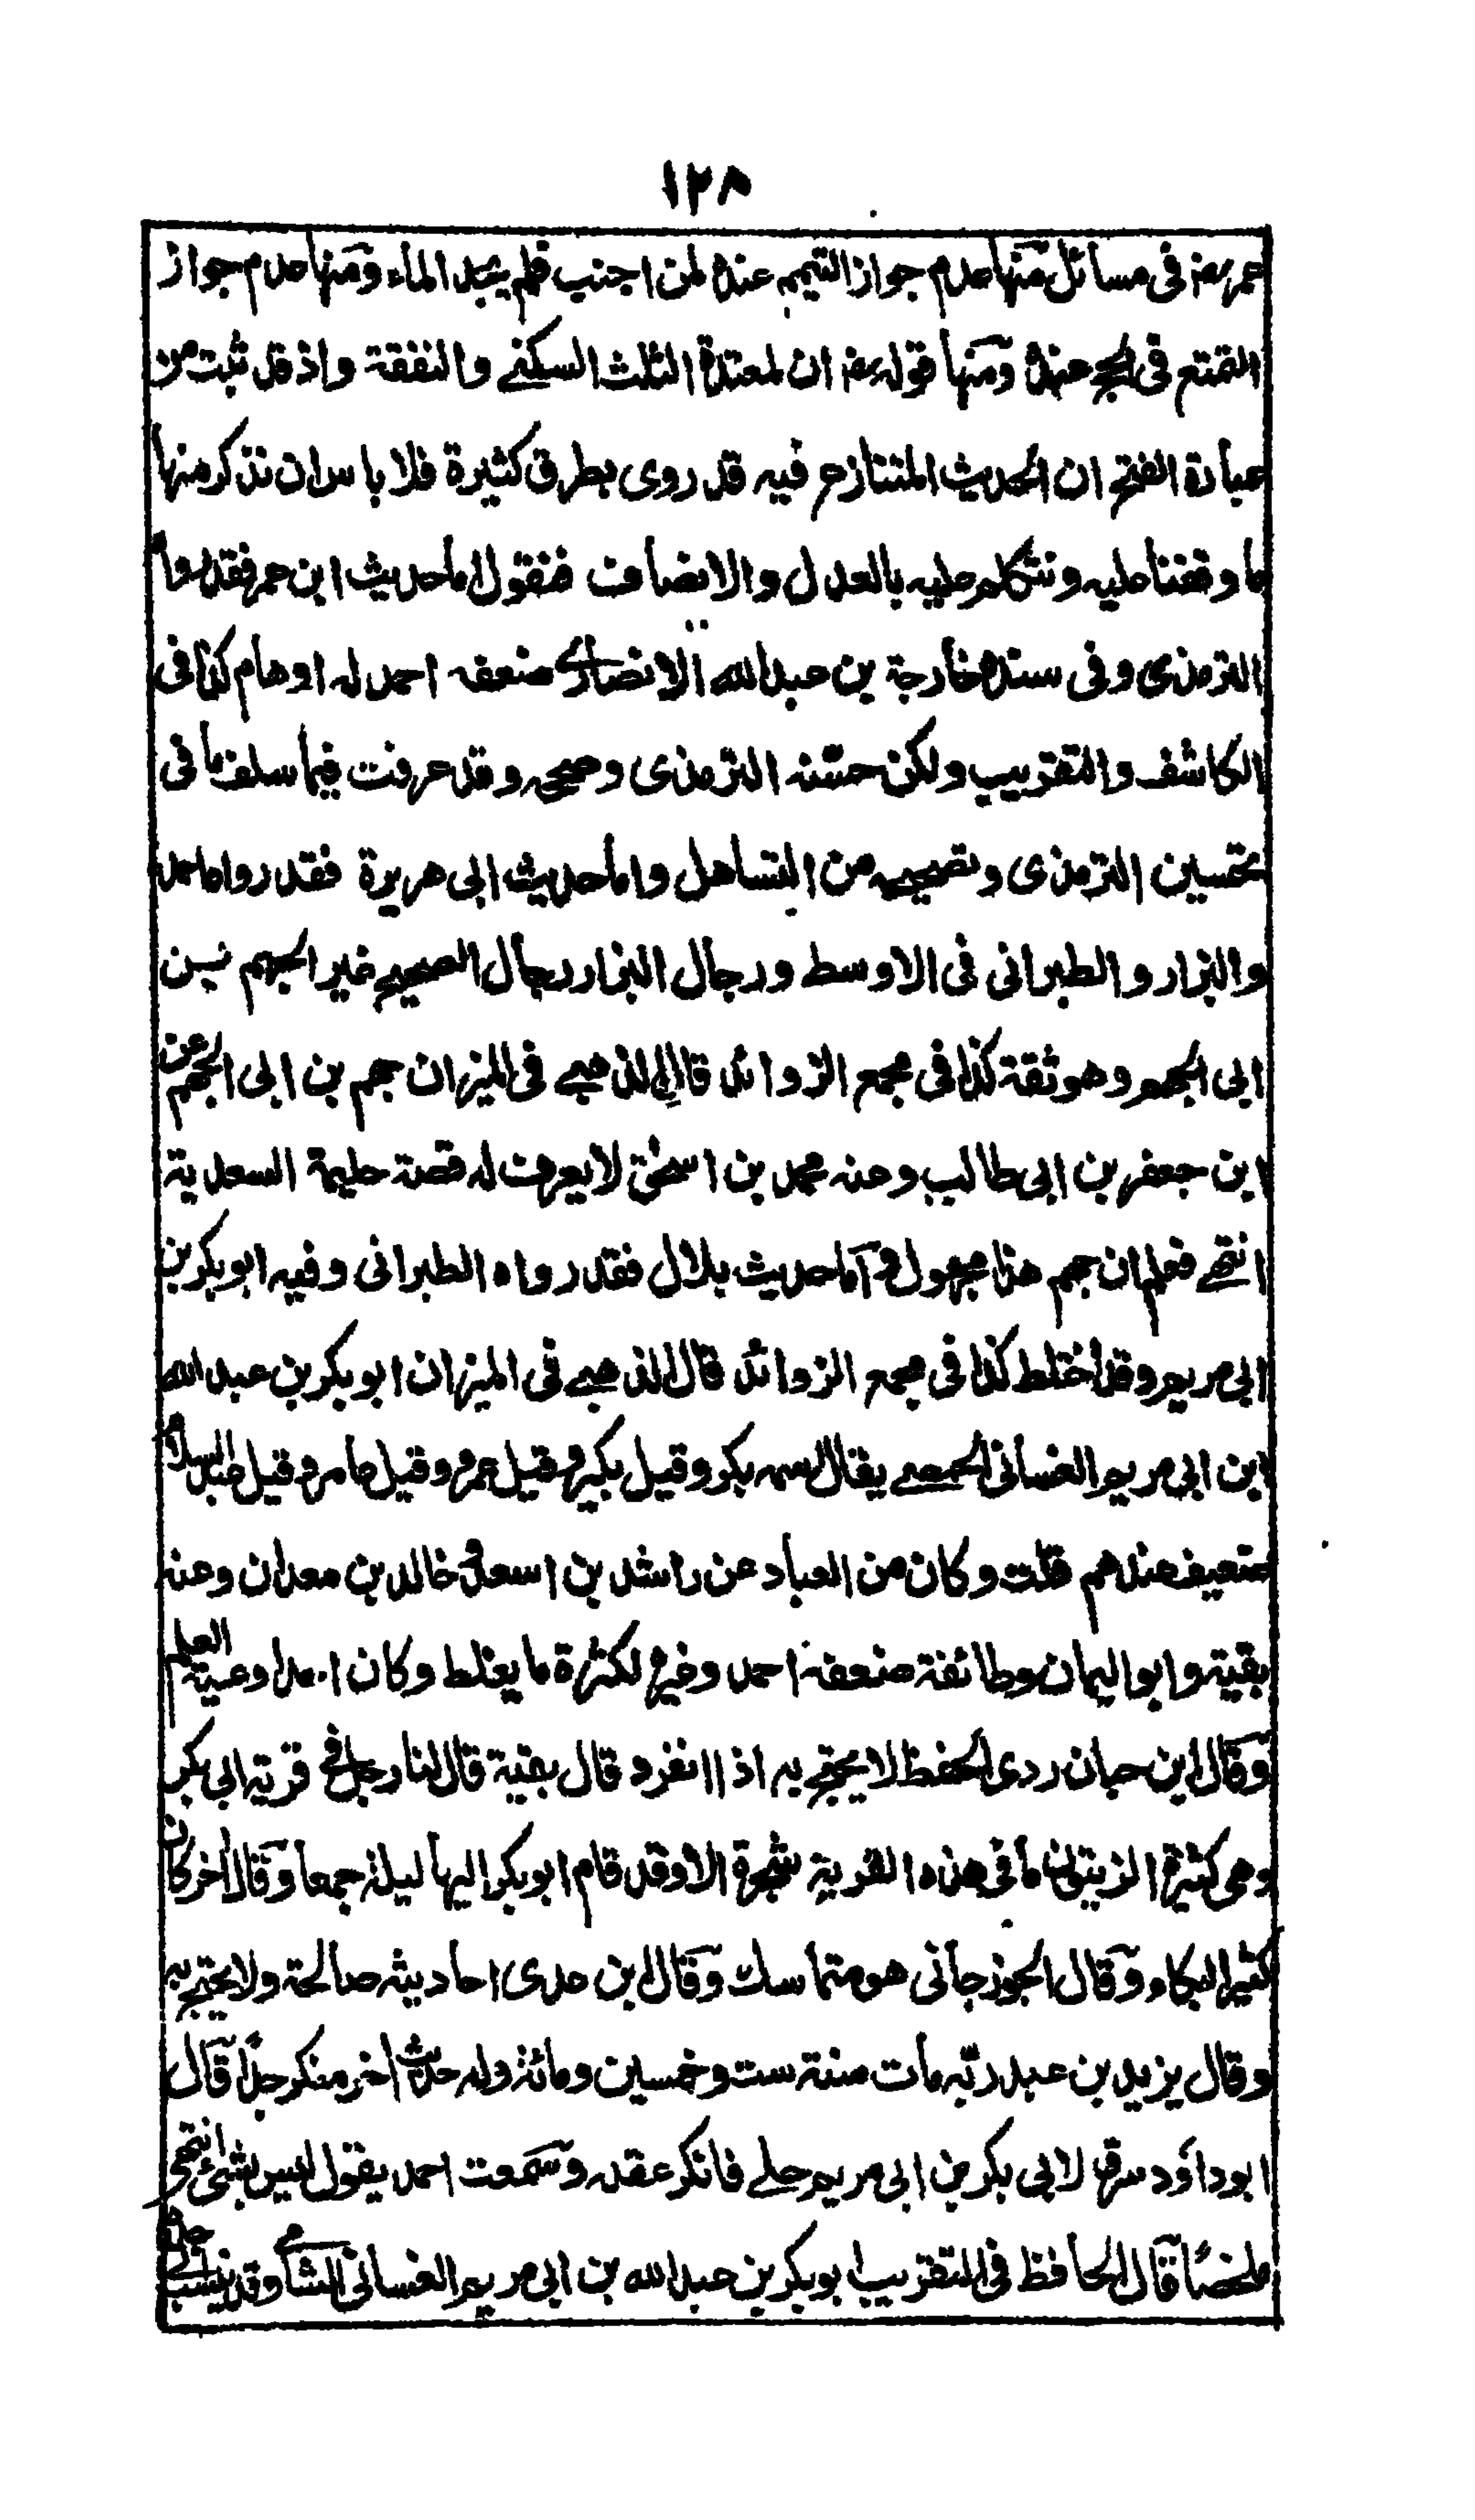 ١٢٨
عمر رض فى مسائل منها عدم جواز التيمم عنده لمن اجنب فلم يجد الماء ومنها عدم جواز
التمتع فى الحج عنده ومنها قوله رض ان لمعتدة الثلث السكنى والنفقة واذ قد ثبت من
عبارة الفتح ان الحديث المتنازع فيه قد روى بطرق كثيرة فلا باس ان نذكر منها
ما وقفنا عليه ونتكلم عليه بالعدل والانصاف فنقول اما حديث ابن عمر فقد رواه
الترمذى وفى سنده خارجة بن عبد الله الانصارى ضعفه احمد له اوهام كذا فى
الكاشف والتقريب ولكن حسّنه الترمذى وصححه وقد عرفت فيما سلف ما فى
تحسين الترمذى وتصحيحه من التساهل واما حديث ابى هريرة فقد رواه احمد
والبزار والطبرانى فى الاوسط ورجال البزار رجال الصحيح غير الجهم بن
ابى الجهم وهو ثقة كذا فى مجمع الزوائد قال الذهبى فى الميزان جهم بن ابى الجهم عن
ابن جعفر بن ابى طالب وعنه محمد بن اسحٰق لا يعرف له قصة حليمة السعدية
انتهى فعلم ان جهم هذا مجهول واما حديث بلال فقد رواه الطبرانى وفيه ابو بكر بن
ابى مريم وقد اختلط كذا فى مجمع الزوائد قال الذهبى فى الميزان ابو بكر بن عبد الله
ابن ابى مريم الغسانى الحمصى يقال اسمه بكر وقيل بكير وقيل عمرو وقيل عامر وقيل عبد السلام
ضعيف عندهم قلت وكان من العباد عن راشد بن اسعد وخالد بن معدان وعنه
بقية وابو اليمان وطائفة ضعفه احمد وغيره لكثرة ما يغلط وكان احد اوعية العلم
وقال ابن حبان ردى الحفظ لا يحتج به اذا انفرد قال بقية قال لنا رجل فى قرية ابى بكر
وهى كثيرة الزيتون ما فى هذه القرية شجرة الا وقد قام ابو بكر اليها ليلة جمعا وقال اخر كان
كثير البكاء وقال الجوزجانى هو متماسك وقال ابن عدى احاديثه صالحة ولا يحتج به
وقال يزيد بن عبد ربّه مات سنة ست وخمسين ومائة وله حديث اخر منكر جدًا قال
ابو داؤد سرق لابى بكر بن ابى مريم حلى فانكر عقله وسمعت احمد يقول ليس بشئ انتهى
ملخصًا قال الحافظ فى التقريب ابو بكر بن عبد الله بن ابى مريم الغسانى الشامى وقد ينسب